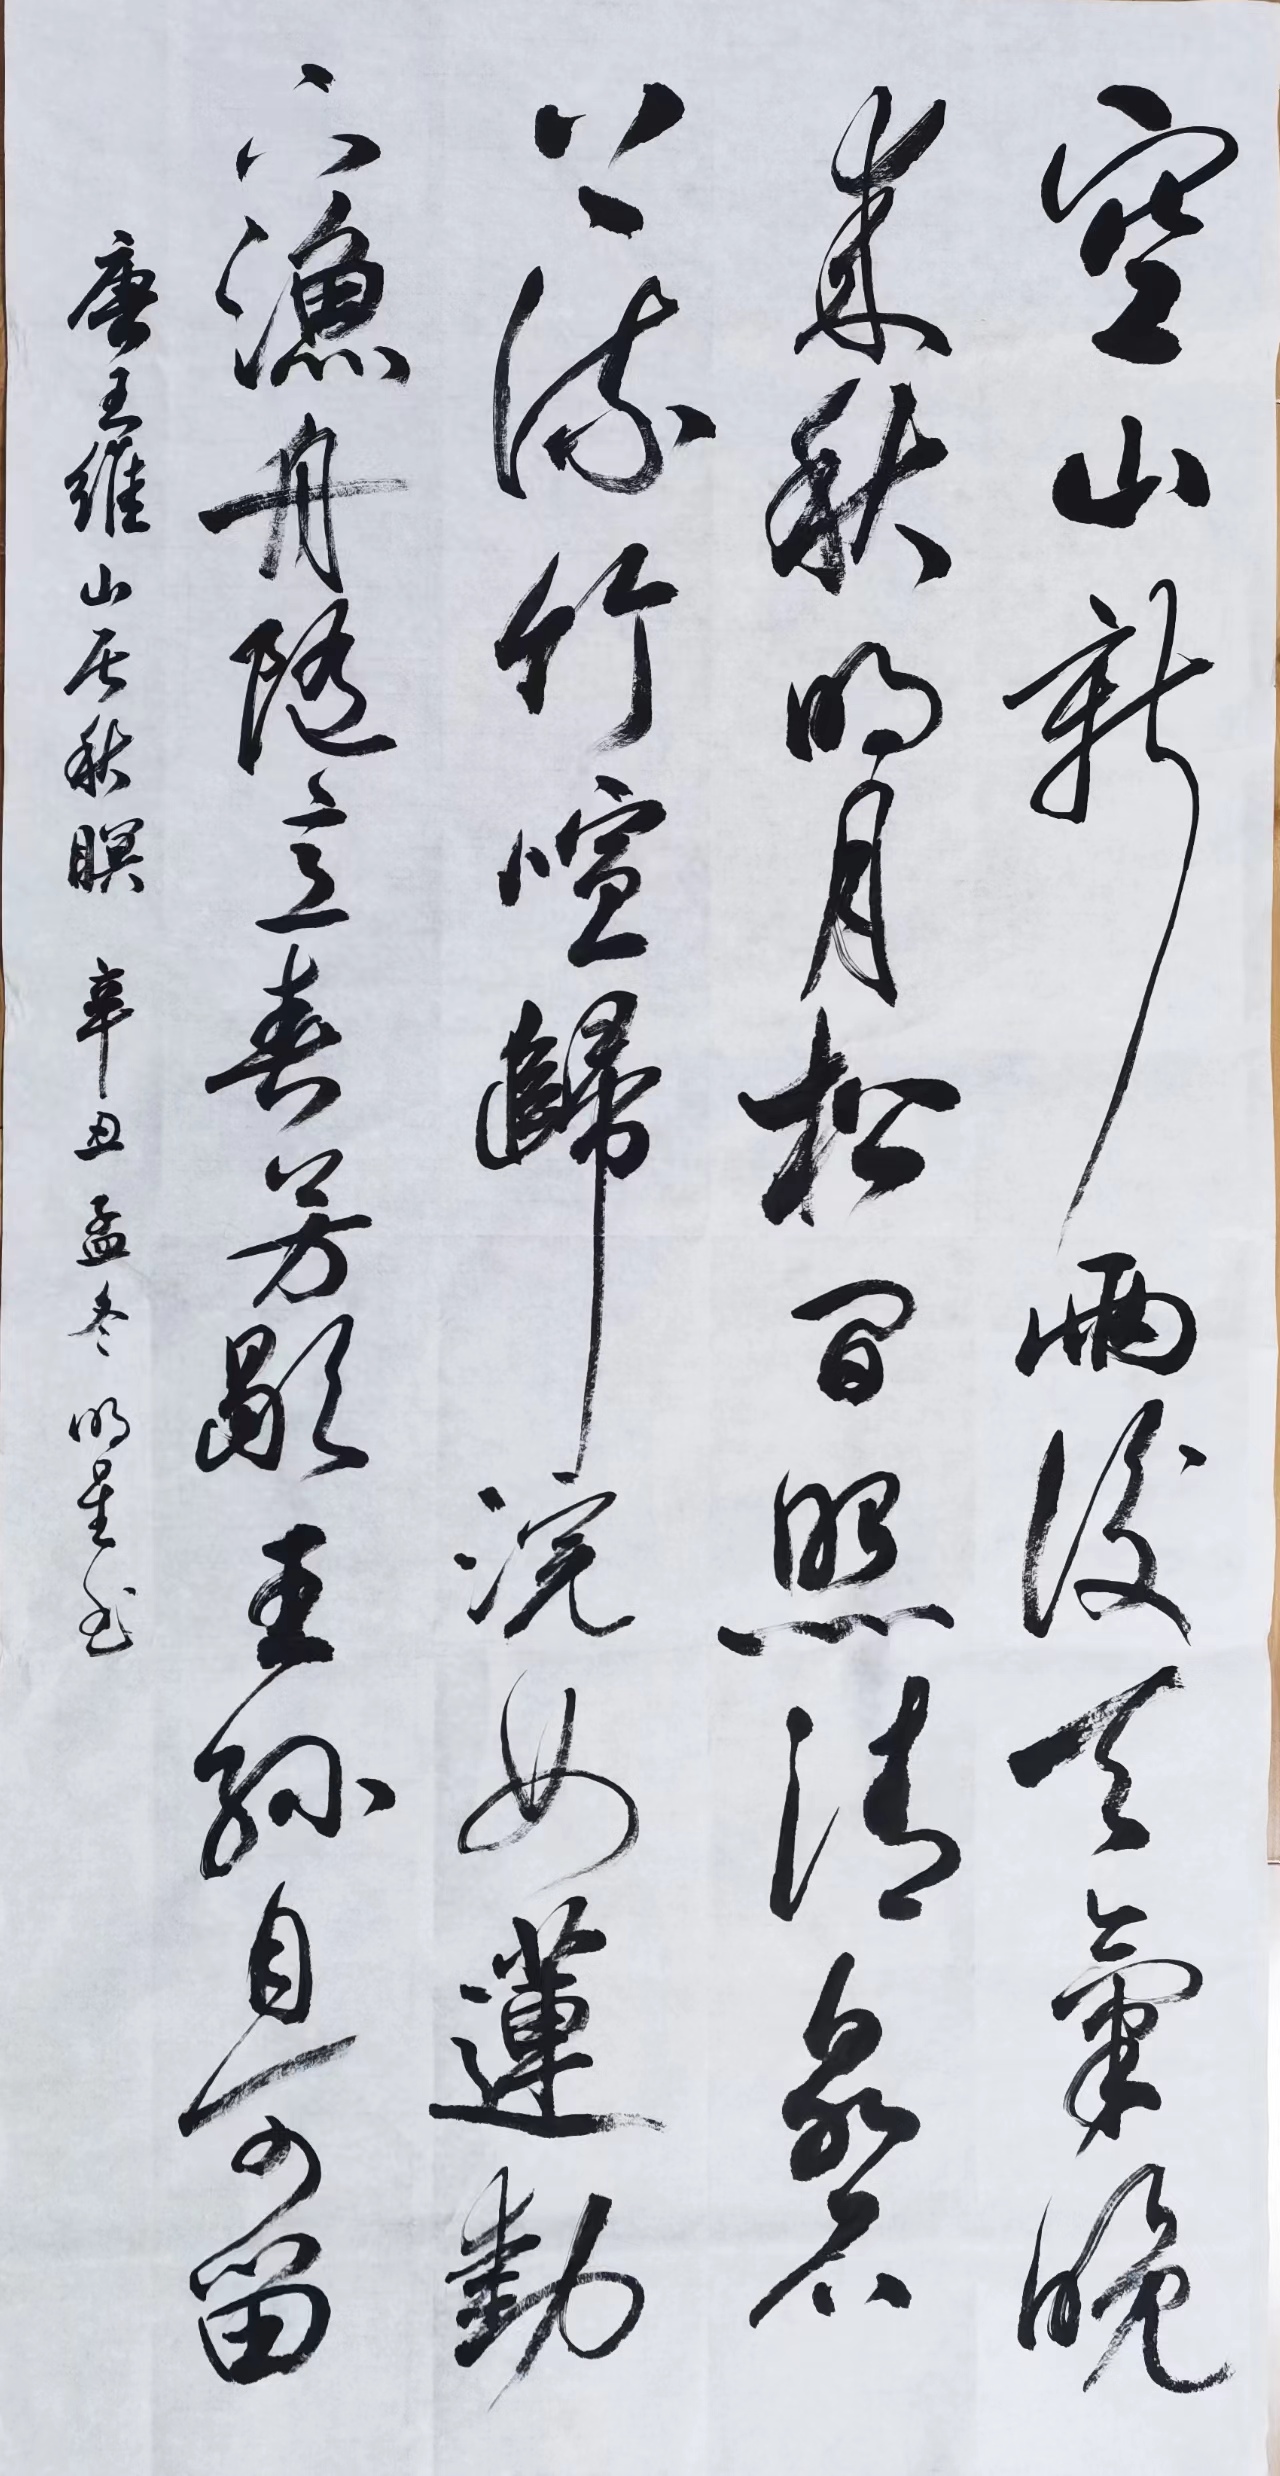 空山新雨後天氣晚
来秋明月松间照清泉石
上流竹喧歸浣女蓮動
下漁舟随意春芳歇王孫自可留
唐王維山居秋暝 辛丑孟冬明星书